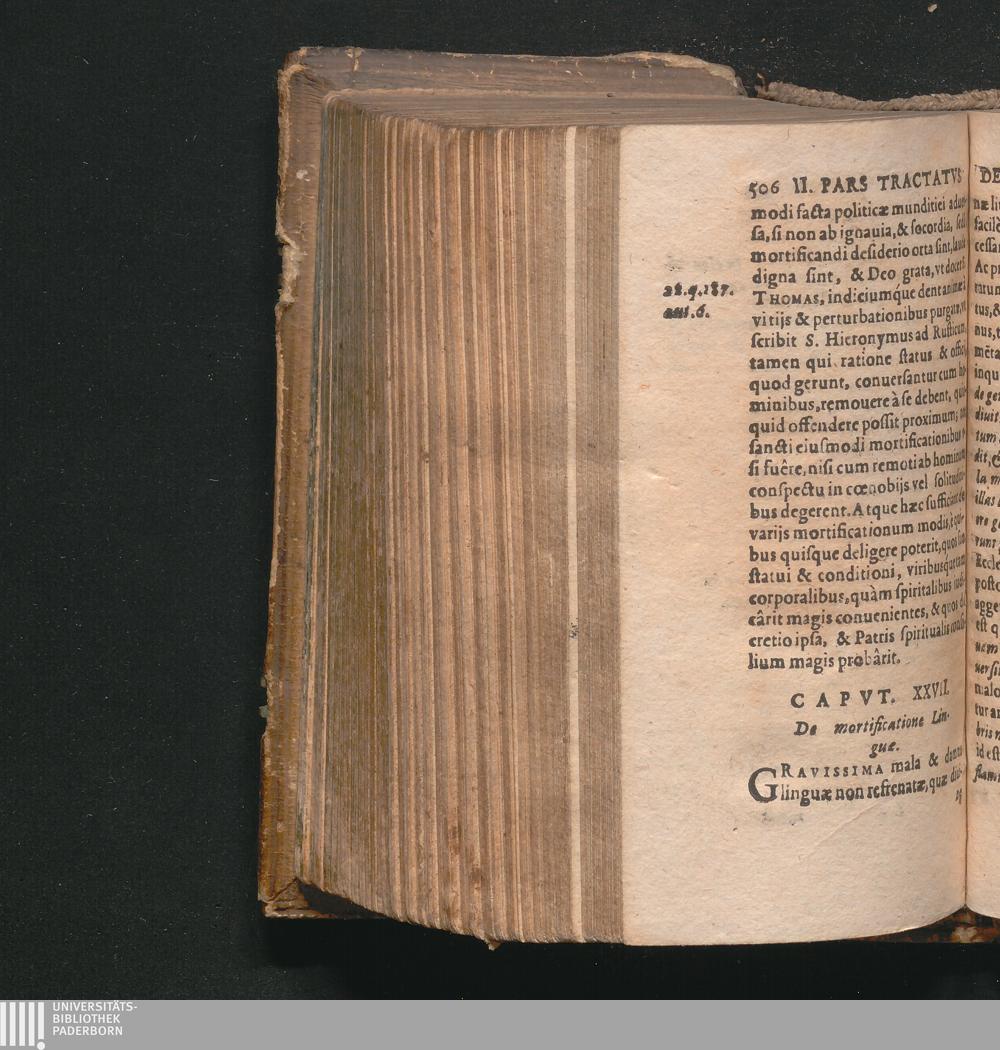 506 II. PARS TRACTATVS
modi facta politicæ munditiei
sa, si non ab ignauia, & socordia, sed
mortificandi desiderio orta sint, laude
digna sint, & Deo grata, vt docet S.
THOMAS, indiciumque dent animæ à
vitijs & perturbationibus purgatæ, vt
scribit S. Hieronymus ad Rusticum,
tamen qui ratione status & officij
quod gerunt, conuersantur cum ho-
minibus, remouere à se debent, quic-
quid offendere possit proximum;
sancti eiusmodi mortificationibus
si fuêre, nisi cum remoti ab hominum
conspectu in cœnobijs vel solitudini-
bus degerent. Atque hæc sufficiant de
varijs mortificationum modis, è qui-
bus quisque deligere poterit, quos suo
statui & conditioni, viribusque tam
corporalibus, quàm spiritalibus iudi-
cârit magis conuenientes, & quos di-
cretio ipsa, & Patris spiritualis consi-
lium magis probârit.
22.q.187.
art.6.
CAPVT. XXVII.
De mortificatione Lin-
guæ.
GRAVISSIMA mala & damna
linguæ non refrenatæ, quæ diui-
DE
næ
facile
Ac
tus, &
inqu
de
diuit
tum
dit,
la
illas
posto
agge
est q
malo
id est
UNIVERSITÄTS-
BIBLIOTHEK
PADERBORN